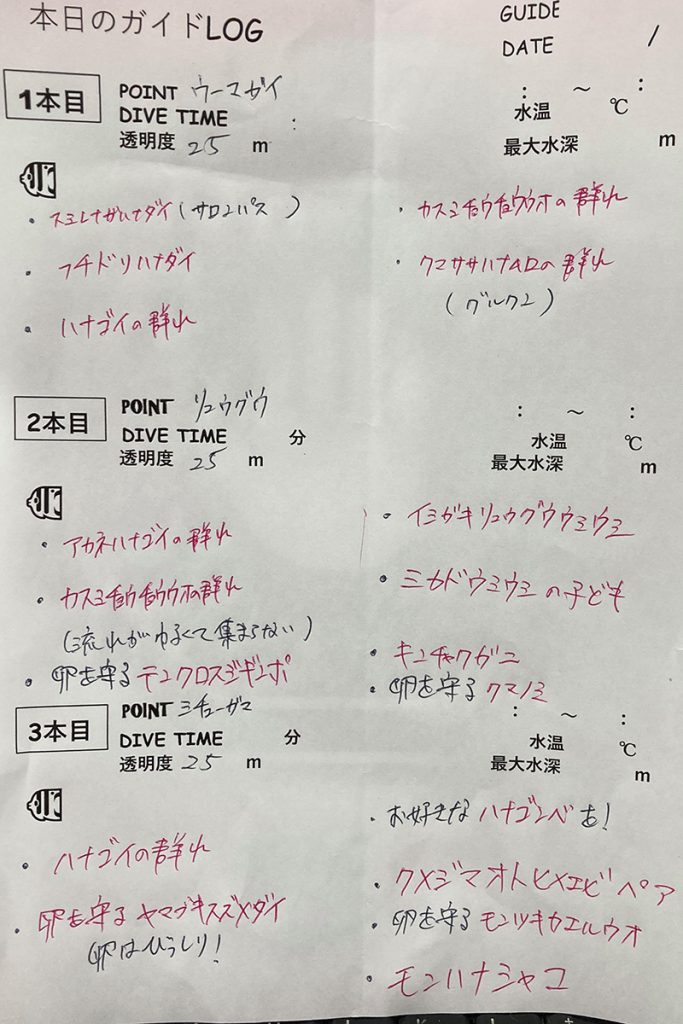 本日のガイドLOG
GUIDE
DATE /
1本目
POINT ウーマガイ
DIVE TIME :
透明度 25 m
: ～ :
水温 ℃
最大水深 m
・スミレナガハナダイ(サロンパス )
・フチドリハナダイ
・ハナゴイの群れ
・カスミチョウチョウウオの群れ
・クマササハナムロの群れ
(グルクン)
2本目
POINT リュウグウ
DIVE TIME 分
透明度 25 m
: ～ :
水温 ℃
最大水深 m
・アカネハナゴイの群れ
・カスミチョウチョウウオの群れ
(流れがゆるくて集まらない)
・卵を守るテンクロスジギンポ
・イシガキリュウグウウミウミ
・ミカドウミウミの子ども
・キンチャクガニ
・卵を守るクマノミ
3本目
POINT ミチューガマ
DIVE TIME 分
透明度 25 m
: ～ :
水温 ℃
最大水深 m
・ハナゴイの群れ
・卵を守るヤマブキスズメダイ
卵はびっしり!
・お好きなハナゴンベも!
・クメジマオトヒメエビペア
・卵を守るモンツキカエルウオ
・モンハナシャコ